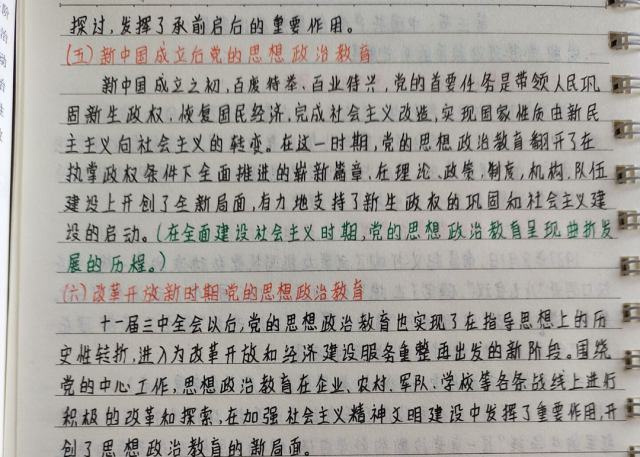 探讨,发挥了承前启后的重要作用。
(五)新中国成立后党的思想政治教育
新中国成立之初,百废待举、百业待兴,党的首要任务是带领人民巩
固新生政权,恢复国民经济,完成社会主义改造,实现国家性质由新民
主主义向社会主义的转变。在这一时期,党的思想政治教育翻开了在
执掌政权条件下全面推进的崭新篇章,在理论、政策、制度、机构、队伍
建设上开创了全新局面,有力地支持了新生政权的巩固和社会主义建
设的启动。(在全面建设社会主义时期,党的思想政治教育呈现曲折发
展的历程。)
(六)改革开放新时期党的思想政治教育
十一届三中全会以后,党的思想政治教育也实现了在指导思想上的历
史性转折,进入为改革开放和经济建设服务重整再出发的新阶段。围绕
党的中心工作,思想政治教育在企业、农村、军队、学校等各条战线上进行
积极的改革和探索,在加强社会主义精神文明建设中发挥了重要作用,开
创了思想政治教育的新局面。